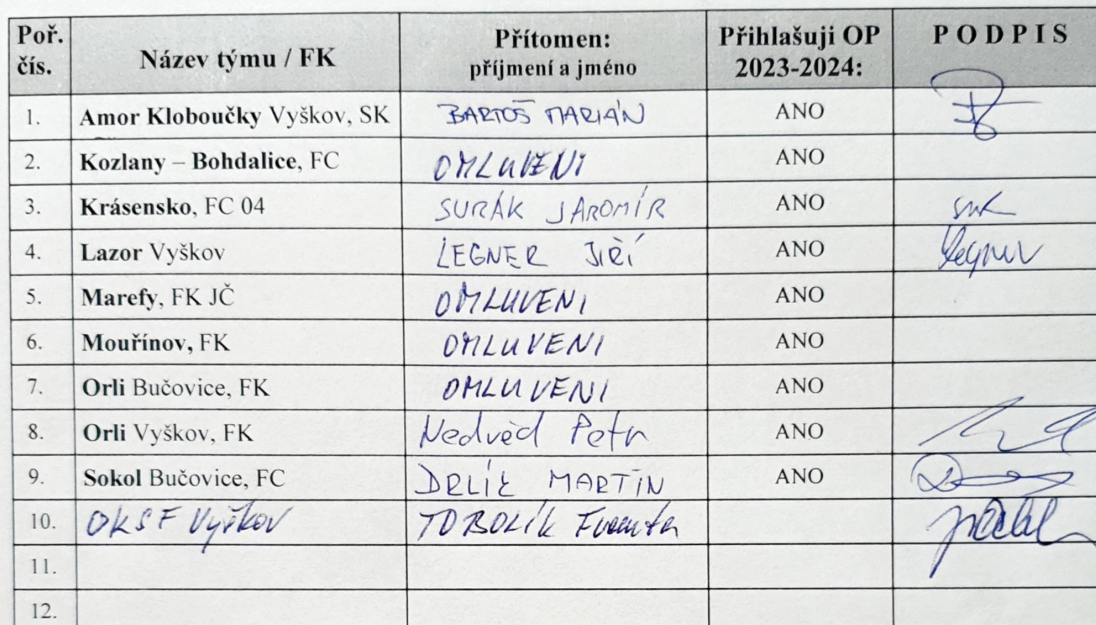 Poř. čís. Název týmu / FK Přítomen: příjmení a jméno Přihlašuji OP 2023-2024: PODPIS
1. Amor Kloboučky Vyškov, SK BARTOŠ MARIÁN ANO
2. Kozlany – Bohdalice, FC OMLUVENI ANO
3. Krásensko, FC 04 SURÁK JAROMÍR ANO
4. Lazor Vyškov LEGNER JIŘÍ ANO Legner
5. Marefy, FK JČ OMLUVENI ANO
6. Mouřínov, FK OMLUVENI ANO
7. Orli Bučovice, FK OMLUVENI ANO
8. Orli Vyškov, FK Nedvěd Petr ANO
9. Sokol Bučovice, FC DRLÍK MARTIN ANO
10. OKSF Vyškov TOBOLÍK
11.
12.